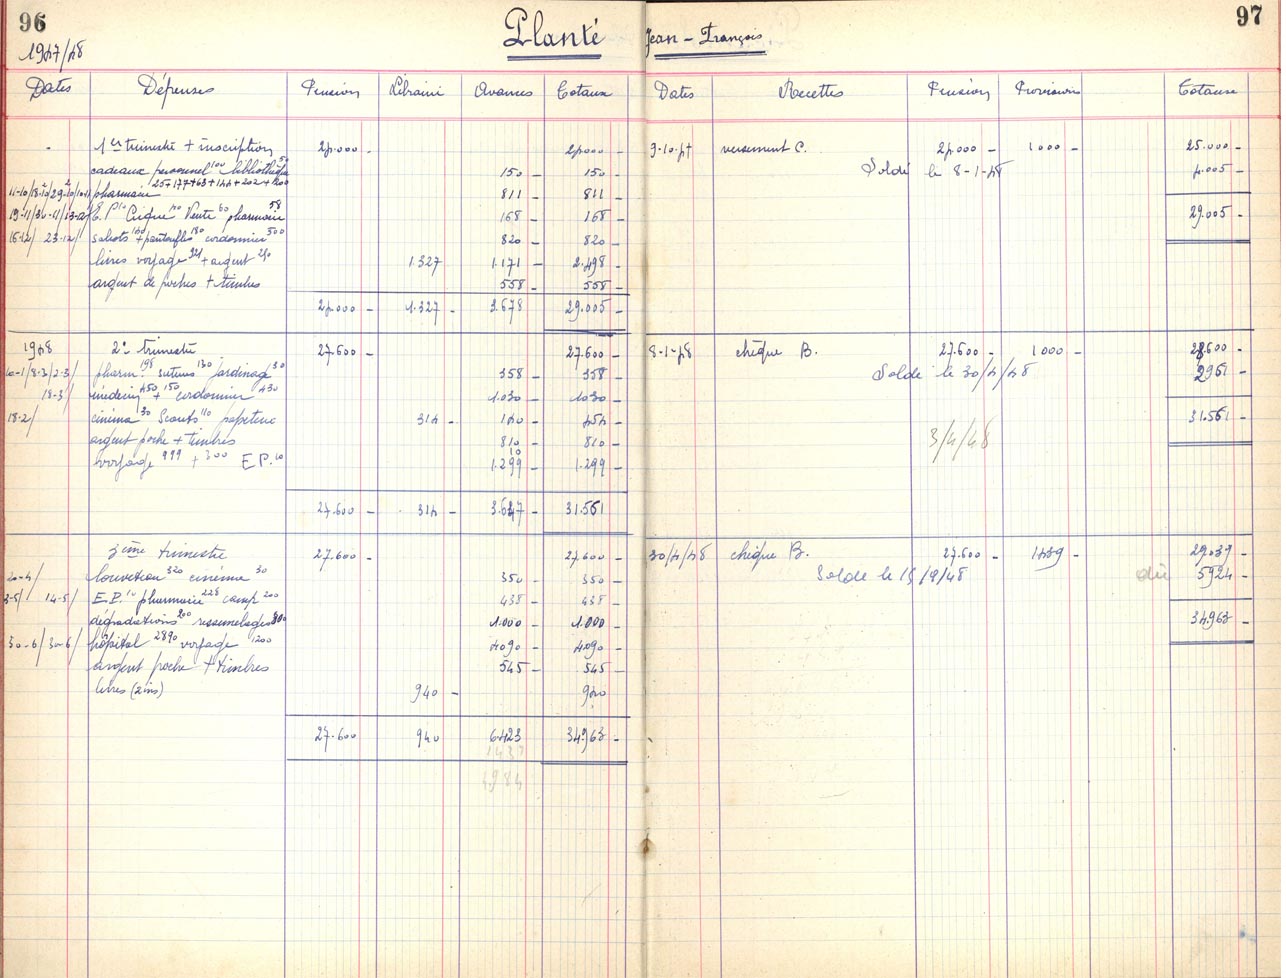 96
1947/48
Planté Jean-François
97
Dates Dépenses Pension Librairie Avances Totaux Dates Recettes Pension Provisions Totaux
1er trimestre + inscription 24.000 - 24000 - 9-10-47 versement C. 24.000 - 1000 - 25.000 -
cadeaux personnel 100 bibliothèque 50 150 - 150 - Soldé le 8-1-48 4.005 -
pharmacie 25+177+63+144+202+200 811 - 811 -
E.P. 10 Cirque 40 Vente 60 pharmacie 58 168 - 168 - 29.005 -
16-12/ 23-12/ sabots 140 + pantoufles 180 cordonnier 500 820 - 820 -
livres voyage 921 + argent 250 1.327 1.171 - 2.498 -
argent de poches + timbres 558 - 558 -
24.000 - 1.327 - 3.678 - 29.005 -
1948 2e trimestre 27.600 - 27.600 - 8-1-48 chèque B. 27.600 - 1000 - 28.600 -
pharm. 198 suture 130 jardinage 30 358 - 358 - Soldé le 30/4/48 2961 -
18-3/ médecin 450 + 150 cordonnier 430 1.030 - 1030 -
18-2/ cinéma 30 Scouts 110 papeterie 314 - 140 - 454 - 31.561 -
argent poche + timbres 810 - 810 - 3/4/48
voyage 999 + 300 E P. 10 10 1.299 - 1.299 -
27.600 - 314 - 3.647 - 31.561
3ème trimestre 27.600 - 27.600 - 30/4/48 chèque B. 27.600 - 1439 - 29.039 -
20-4/ louveteau 320 cinéma 30 350 - 350 - Solde le 15/9/48 dû 5924 -
3-5/ 14-5/ E.P. 10 pharmacie 228 camp 200 438 - 438 -
dégradations 200 ressemelages 800 1.000 - 1.000 - 34963 -
30-6/ 30-6/ hôpital 2890 voyage 1200 4090 - 4.090 -
argent poche + timbres 545 - 545 -
livres (2 ins) 940 - 940 -
27.600 940 6423 34.963 -
1439
4984